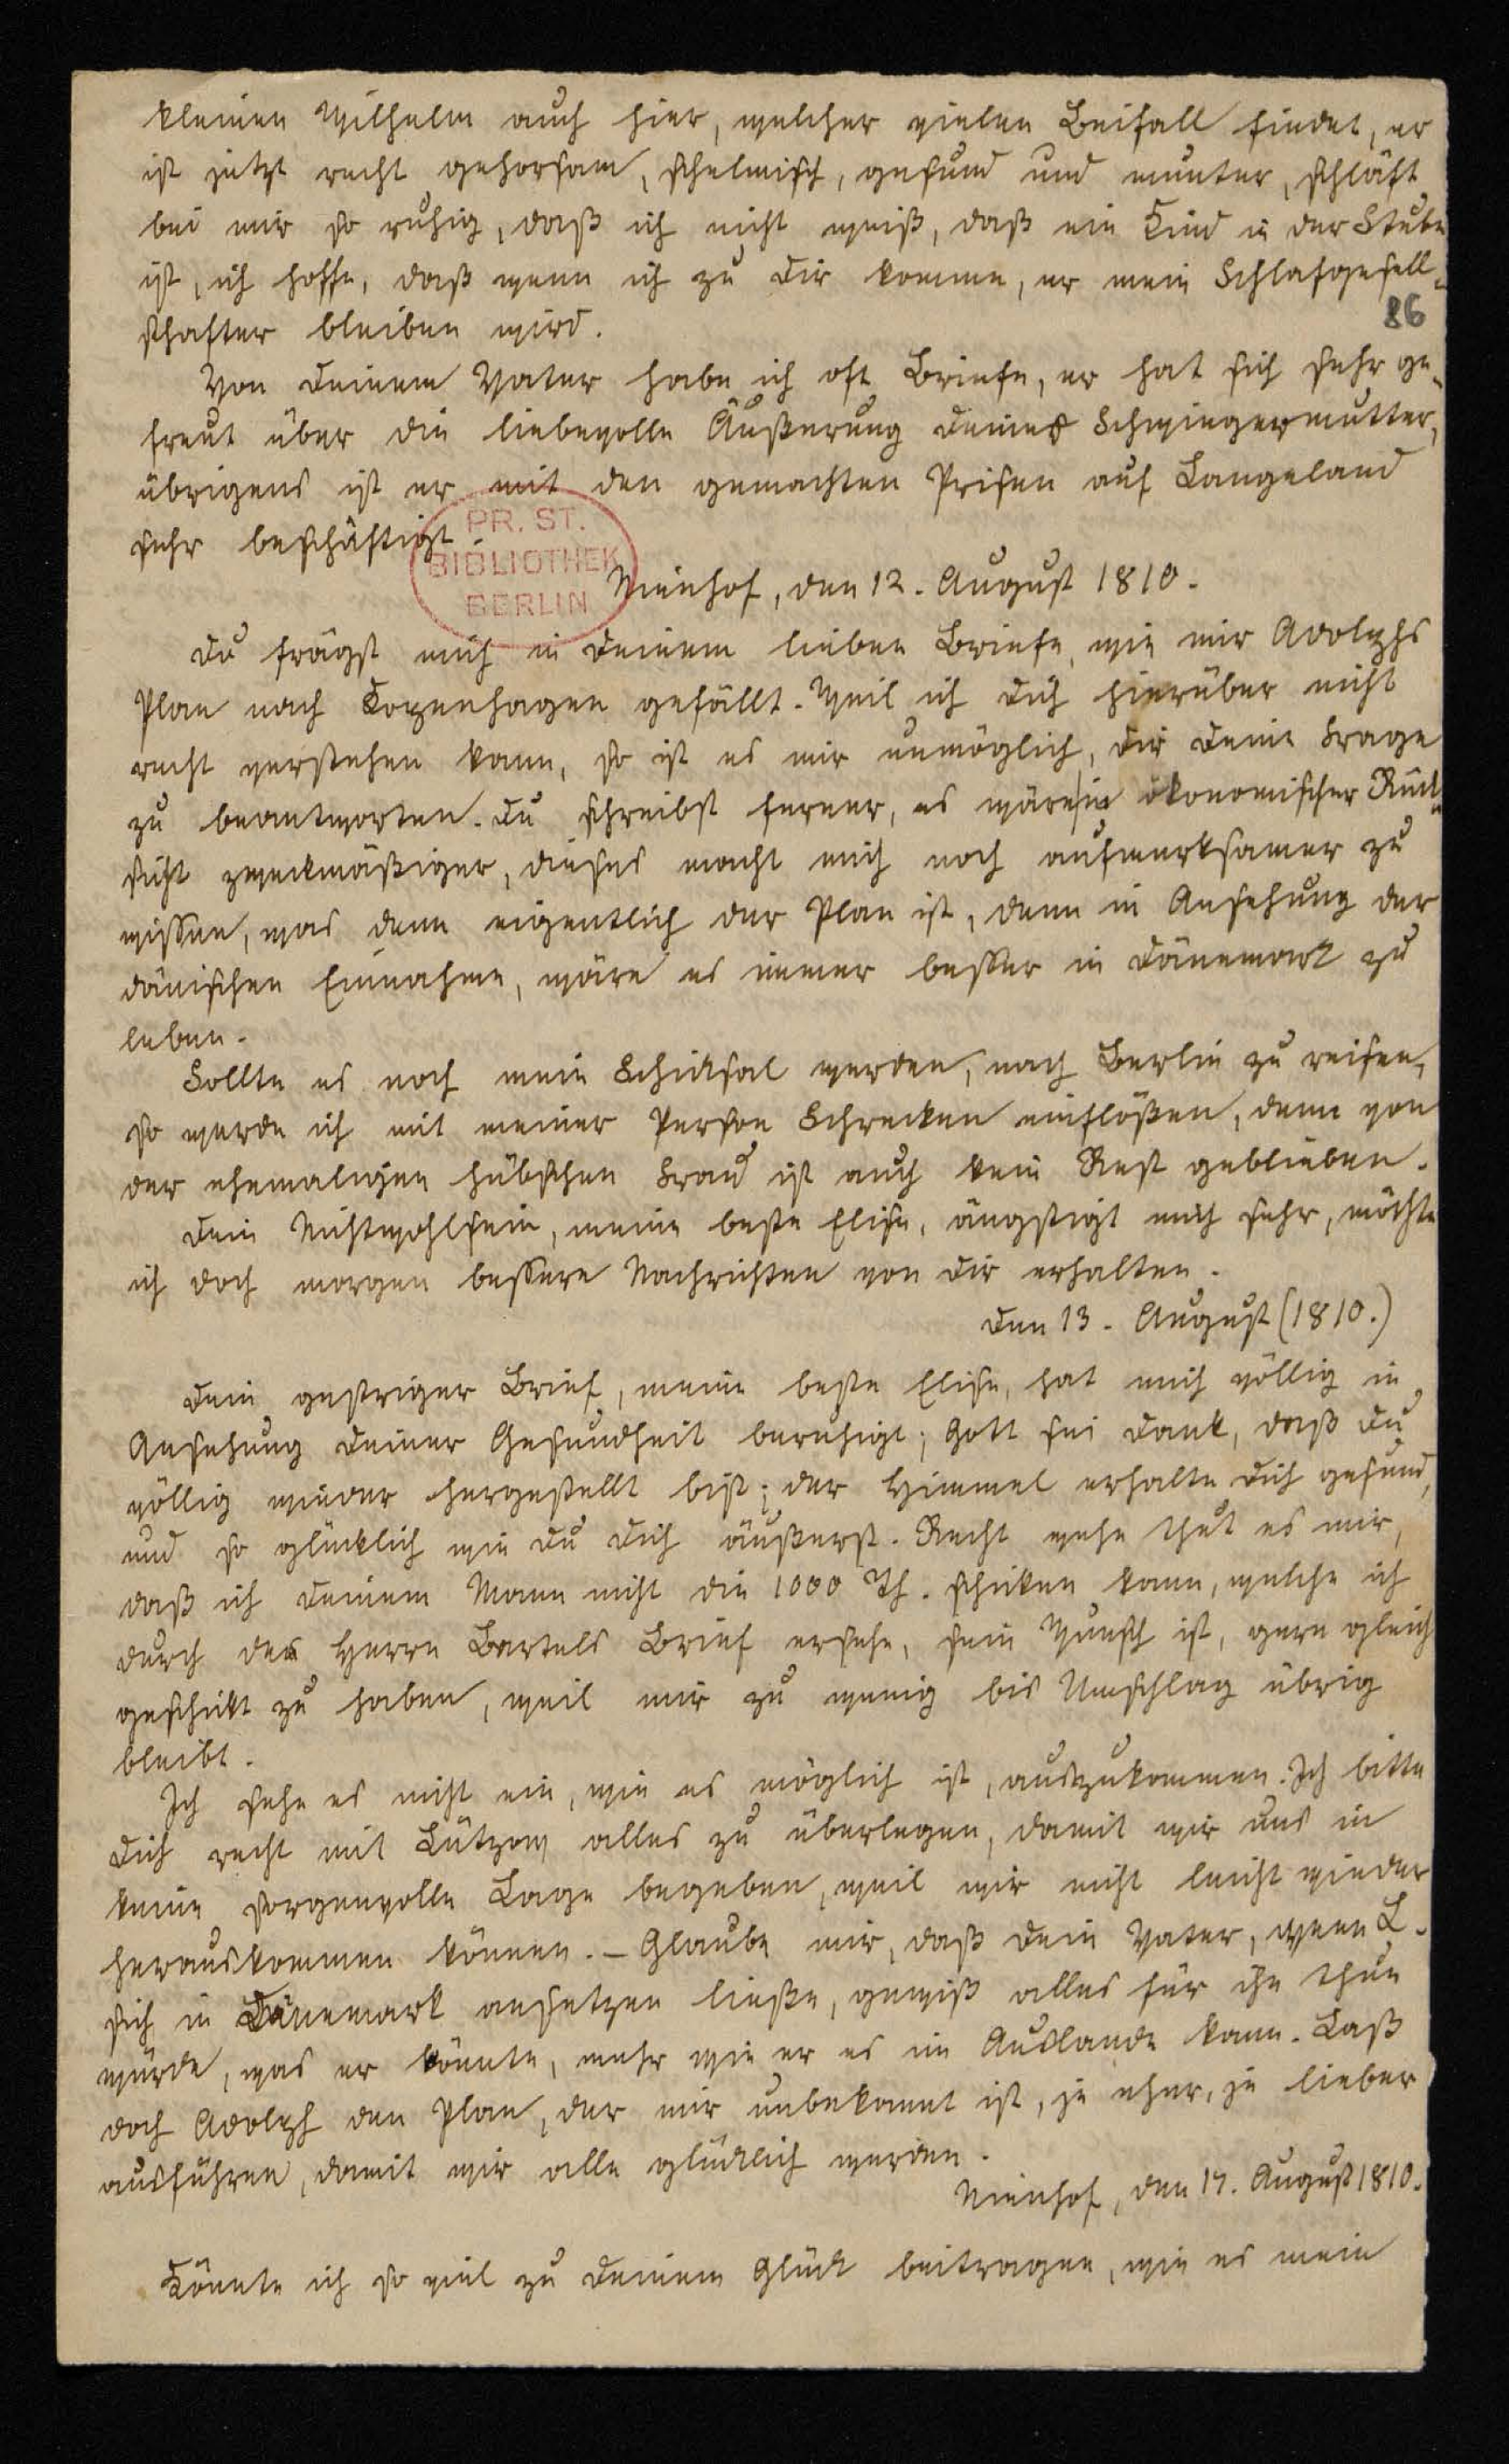 kleinen Wilhelm auch hier, welcher vielen Beifall findet, er
ist jetzt recht gehorsam, schelmisch, gesund und munter, schläft
bei mir so ruhig, daß ich nicht weiß, daß ein Kind in der Stube
ist, ich hoffe, daß wenn ich zu Dir komme, er mein Schlafgesell-
schafter bleiben wird.
86
Von Deinem Vater habe ich oft Briefe, er hat sich sehr ge-
freut über die liebevolle Äußerung Deiner Schwiegermutter,
übrigens ist er mit den gemachten Prisen auf Langeland
sehr beschäftigt.
PR. ST.
BIBLIOTHEK
BERLIN
Nienhof, den 12. August 1810.
Du frägst mich in Deinem lieben Briefe, wie mir Adolphs
Plan nach Kopenhagen gefällt. Weil ich Dich hierüber nicht
recht verstehen kann, so ist es mir unmöglich, Dir Deine Frage
zu beantworten. Du schreibst ferner, es wäre in ökonomischer Rück-
sicht zweckmäßiger, dieses macht mich noch aufmerksamer zu
wissen, was denn eigentlich der Plan ist, denn in Ansehung der
dänischen Einnahme, wäre es immer besser in Dänemark zu
leben.
Sollte es noch mein Schicksal werden, nach Berlin zu reisen,
so werde ich mit meiner Person Schrecken einflößen, denn von
der ehemaligen hübschen Frau ist auch kein Rest geblieben.
Dein Nichtwohlsein, meine beste Elise, ängstigt mich sehr, möchte
ich doch morgen bessere Nachrichten von Dir erhalten.
Den 13. August (1810.)
Dein gestriger Brief, meine beste Elise, hat mich völlig in
Ansehung Deiner Gesundheit beruhigt; Gott sei Dank, daß Du
völlig wieder hergestellt bist; der Himmel erhalte Dich gesund,
und so glücklich wie Du Dich äußerst. Recht wehe thut es mir,
daß ich Deinem Mann nicht die 1000 Th. schicken kann, welche ich
durch des Herrn Bartels Brief ersehe, sein Wunsch ist, gern gleich
geschickt zu haben, weil mir zu wenig bis Umschlag übrig
bleibt.
Ich sehe es nicht ein, wie es möglich ist, auszukommen. Ich bitte
Dich recht mit Lützow alles zu überlegen, damit wir uns in
keine sorgenvolle Lage begeben, weil wir nicht leicht wieder
herauskommen können. – Glaube mir, daß Dein Vater, wenn L.
sich in Dänemark ansetzen ließe, gewiß alles für ihn thun
würde, was er könnte, mehr wie er es im Auslande kann. Laß
doch Adolph den Plan, der mir unbekannt ist, je eher, je lieber
ausführen, damit wir alle glücklich werden.
Nienhof, den 17. August 1810.
Könnte ich so viel zu Deinem Glück beitragen, wie es mein